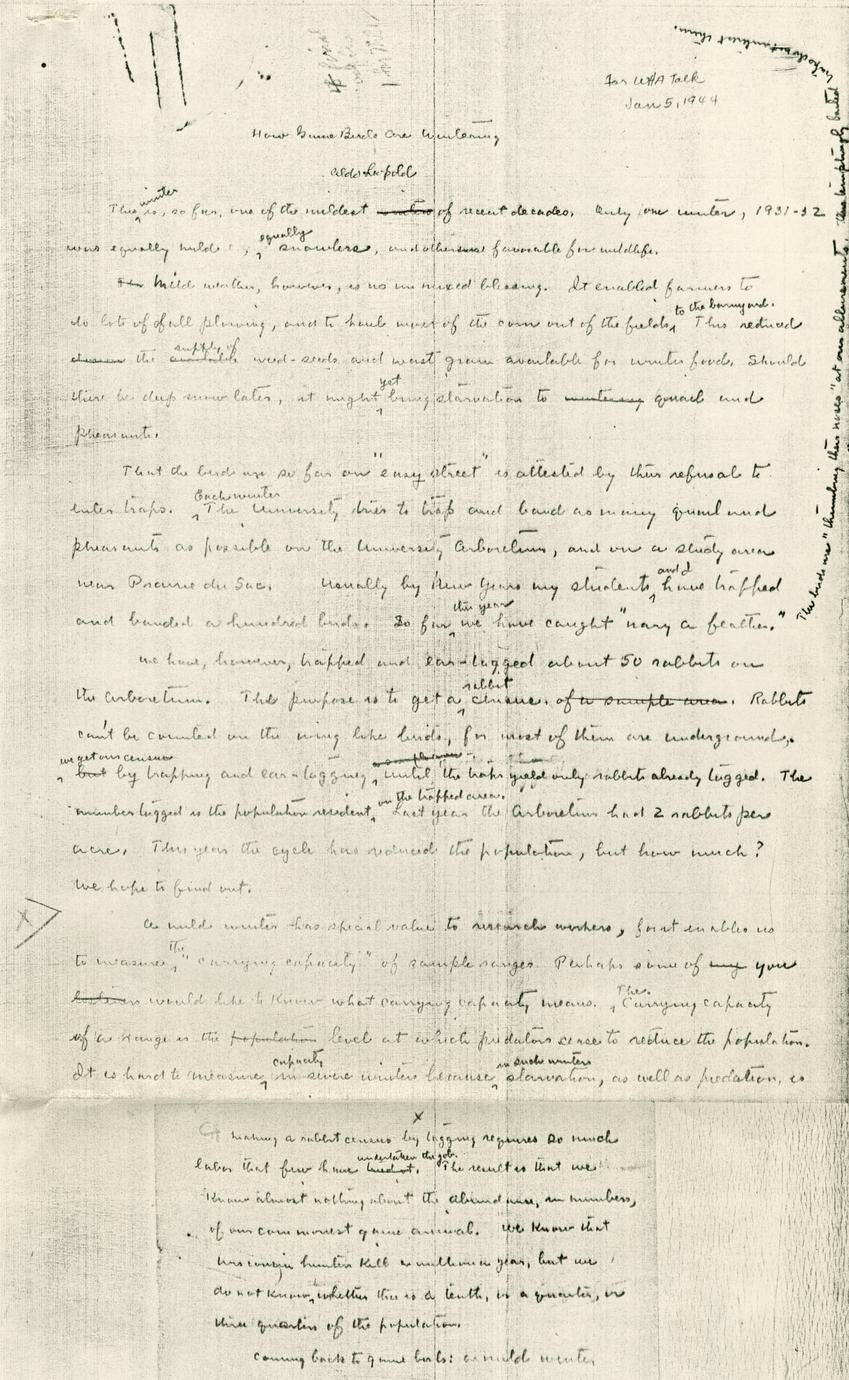 For WHA Talk
Jan 5, 1944
How Game Birds Are Wintering
Aldo Leopold
This winter is, so far, one of the mildest winters of recent decades. Only one winter, 1931-32
was equally mild, equally snowless, and otherwise favorable for wildlife.
Mild weather, however, is no unmixed blessing. It enabled farmers to
do lots of fall plowing, and to haul most of the corn out of the fields to the barnyard. This reduced
the supply of available weed-seeds and waste grain available for winter food. Should
there be deep snow later, it might yet bring starvation to wintering quail and
pheasants.
That the birds are so far on "easy street" is attested by their refusal to
enter traps. Each winter The University tries to trap and band as many quail and
pheasants as possible on the University Arboretum, and on a study area
near Prairie du Sac. Usually by New Years my students and I have trapped
and banded a hundred birds. So far this year we have caught "nary a feather."
The birds are "thumbing their noses" at our allurements, these temptingly baited
We have, however, trapped and ear-tagged about 50 rabbits on
the Arboretum. The purpose is to get a rabbit census. of a sample area. Rabbits
can't be counted on the wing like birds, for most of them are underground.
we get our census but by trapping and ear-tagging until the traps yield only rabbits already tagged. The
number tagged is the population resident on the trapped area. Last year the Arboretum had 2 rabbits per
acre. This year the cycle has reduced the population, but how much?
We hope to find out.
X
A mild winter has special value to research workers, for it enables us
to measure the "carrying capacity" of sample ranges. Perhaps some of my you
listeners would like to know what carrying capacity means. The Carrying capacity
of a range is the population level at which predators cease to reduce the population.
It is hard to measure capacity in severe winters because in such winters starvation, as well as predation, is
X
making a rabbit census by tagging requires so much
labor that few have tried it. undertaken the job. The result is that we
know almost nothing about the abundance, in numbers,
of our commonest game animal. We know that
Wisconsin hunters kill a million a year, but we
do not know whether this is a tenth, or a quarter, or
three quarters of the population.
Coming back to game birds: a mild winter